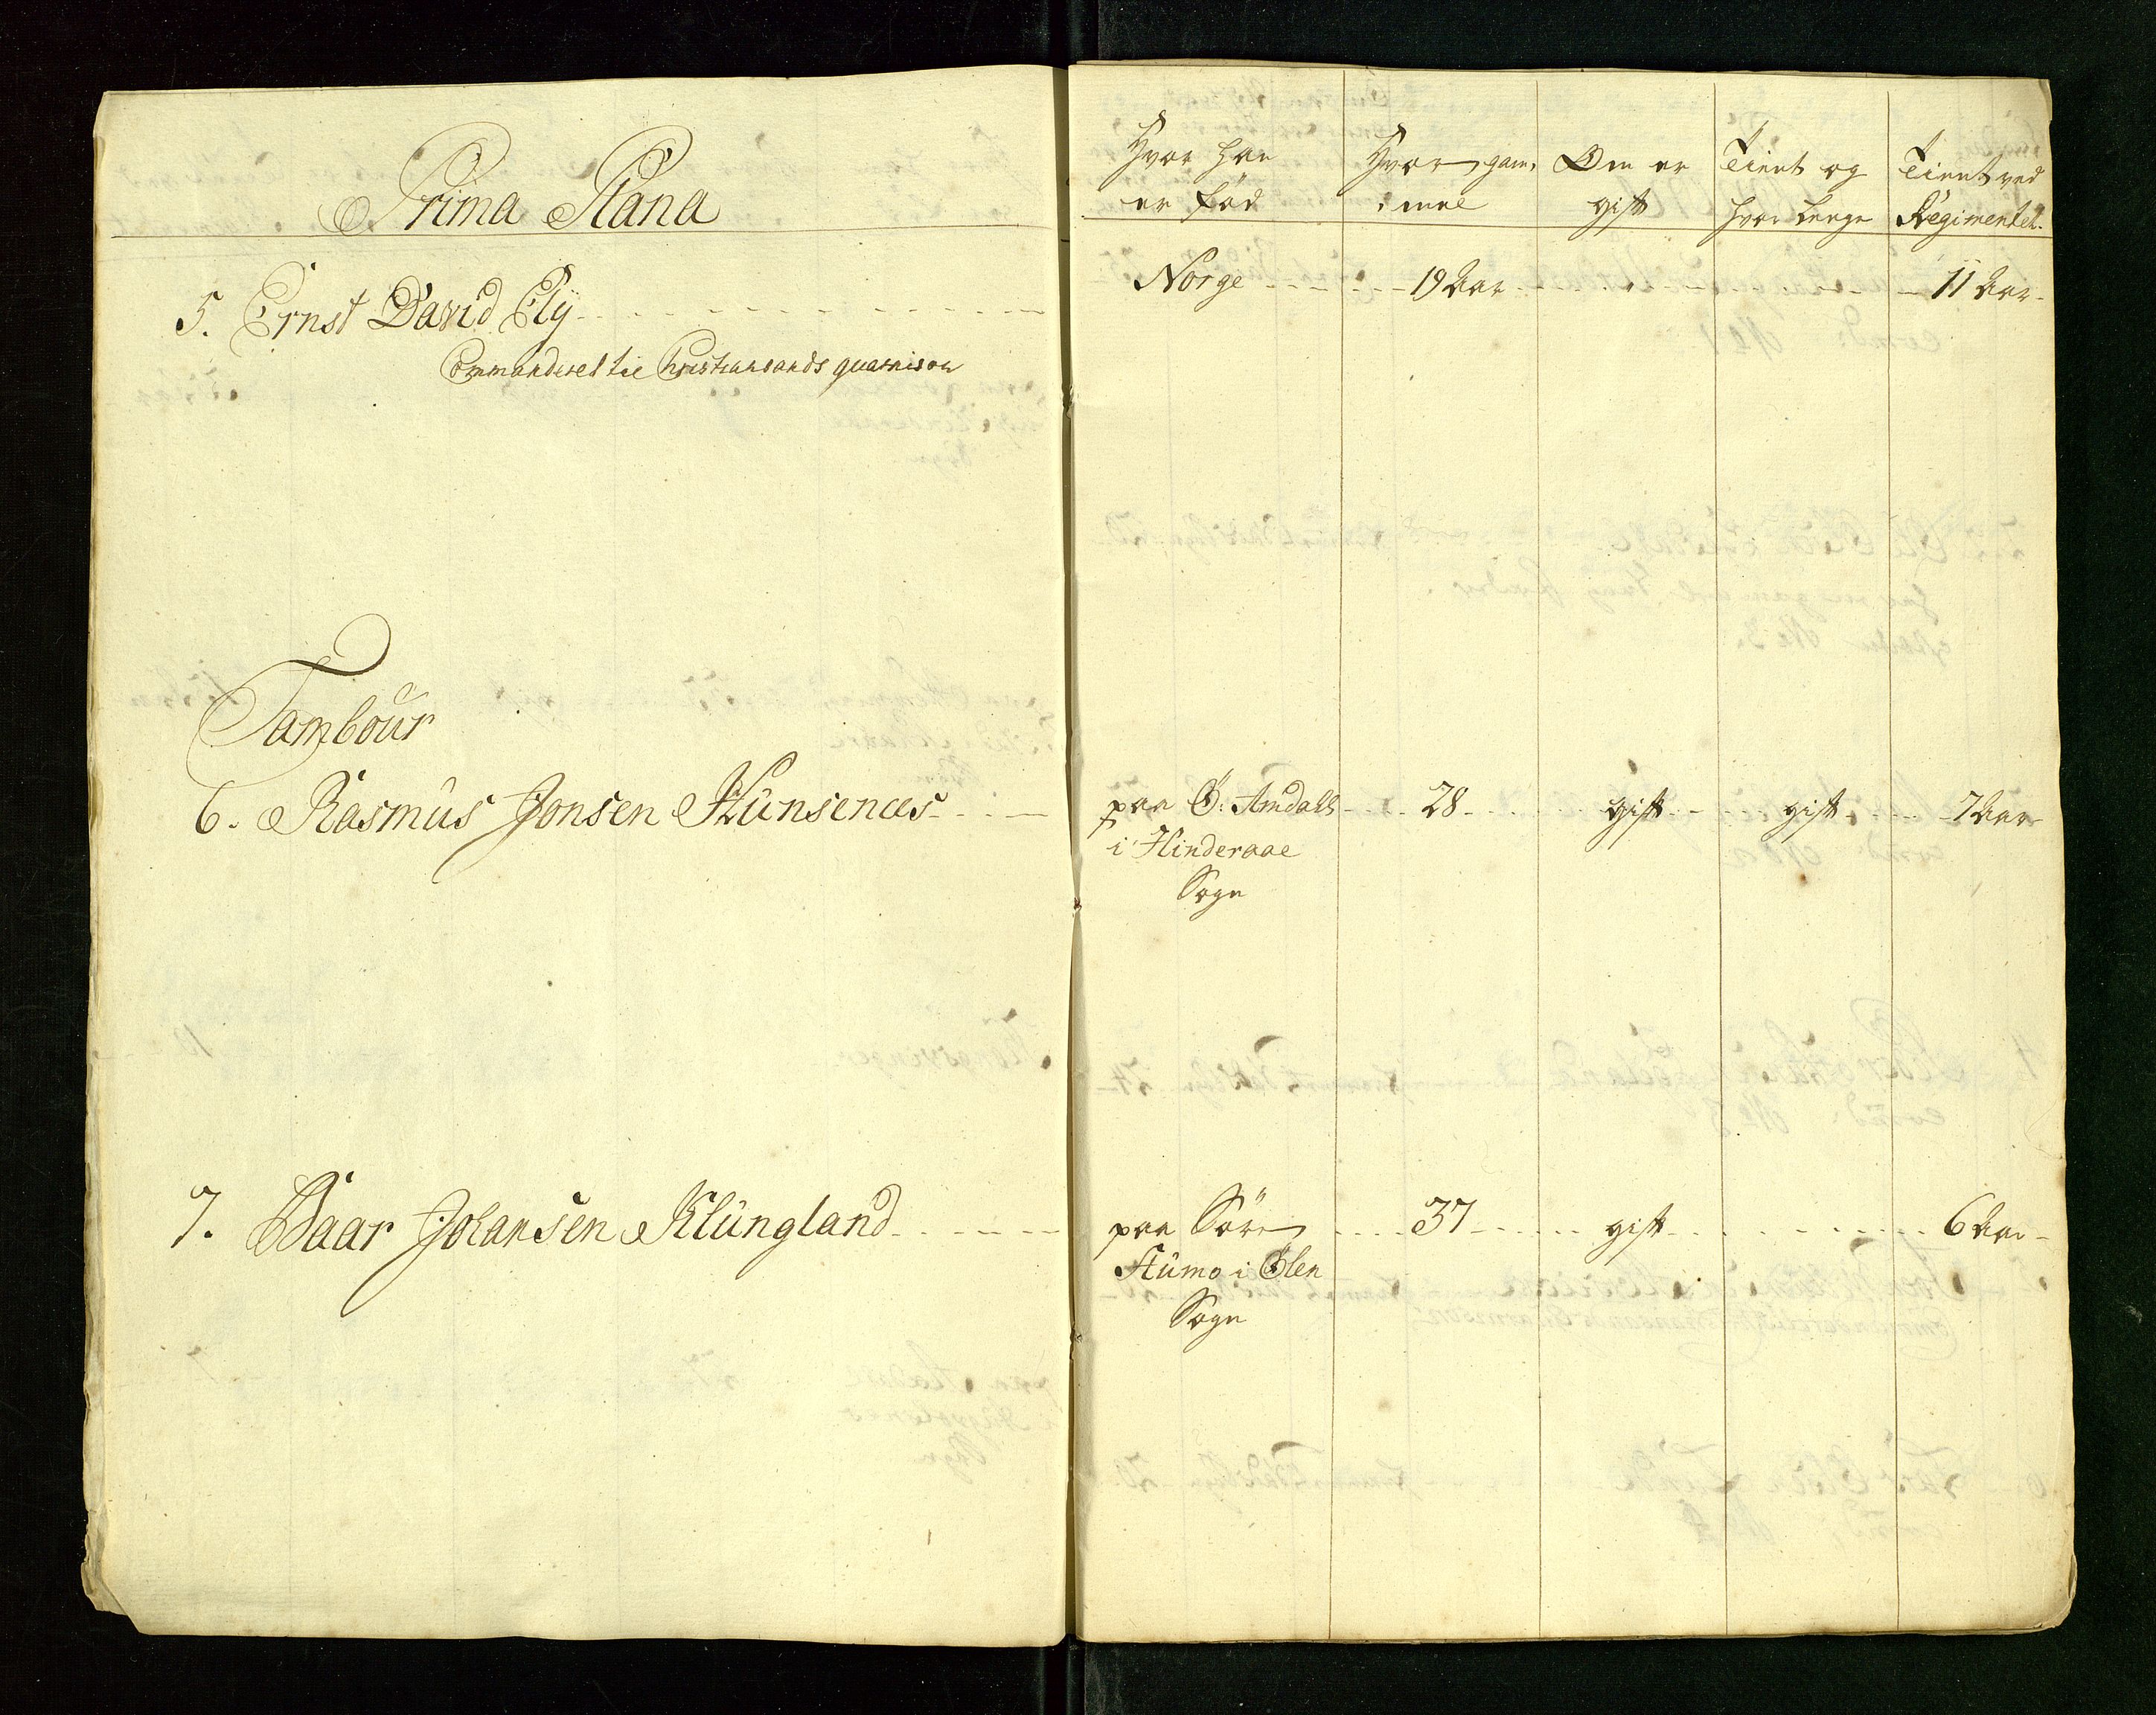 Prima Plana
5. Ernst David Ely
Commanderet til Christiansands guarnison
Tambour
6. Rasmus Jonsen Hunsenæs
7. Baar Johansen Klungland
Hvor han er fød
Hvor gam¬mel
Om er gift
Tient og hvor lenge
Tient ved Regimentet.
Norge 19 Aar 11 Aar
paa Ø: Amdahl 28 gift gift 7 Aar
i Hinderaae
Sogn
paa Søre 37 gift 6 Aar
Stumo i Ølen
Sogn